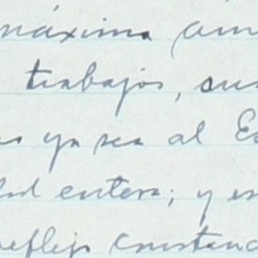 máxima am
trabajos, sus
ya sea al Es
dad entera; y es
reflejo constanc